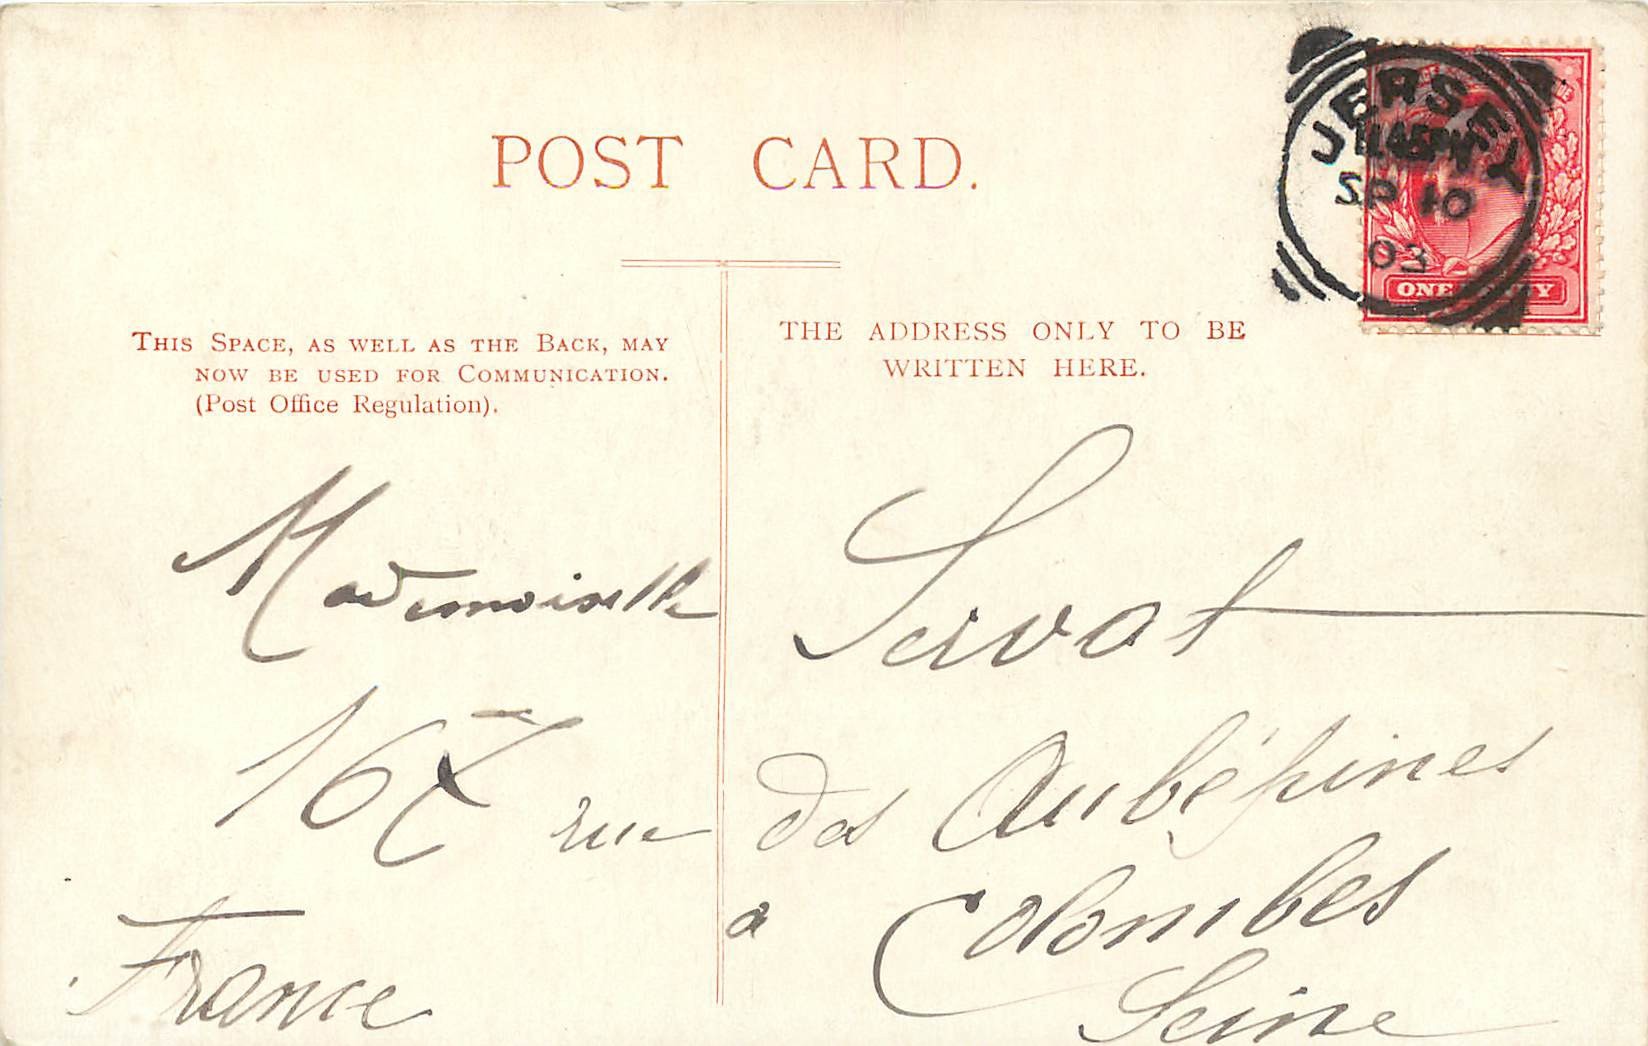 POST CARD.
THIS SPACE, AS WELL AS THE BACK, MAY
NOW BE USED FOR COMMUNICATION.
(Post Office Regulation).
THE ADDRESS ONLY TO BE
WRITTEN HERE.
JERSEY
SP 10
03
ONE
Mademoiselle Servat
rue des Aubépines
a Colombes
France Seine